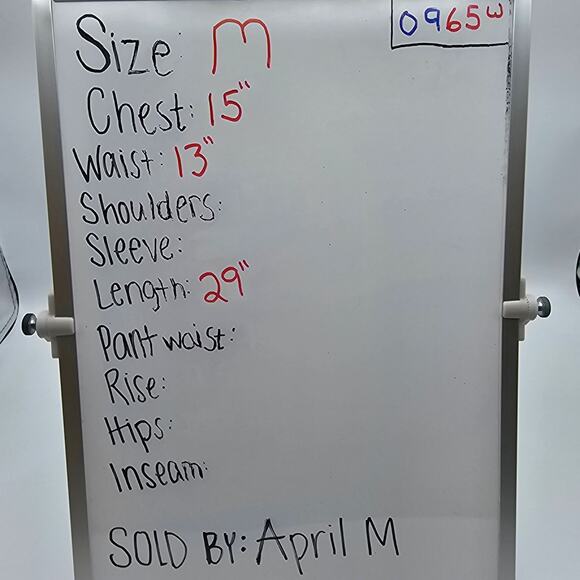 0965W
Size: M
Chest: 15"
Waist: 13"
Shoulders:
Sleeve:
Length: 29"
Pant waist:
Rise:
Hips:
Inseam:
SOLD BY: April M